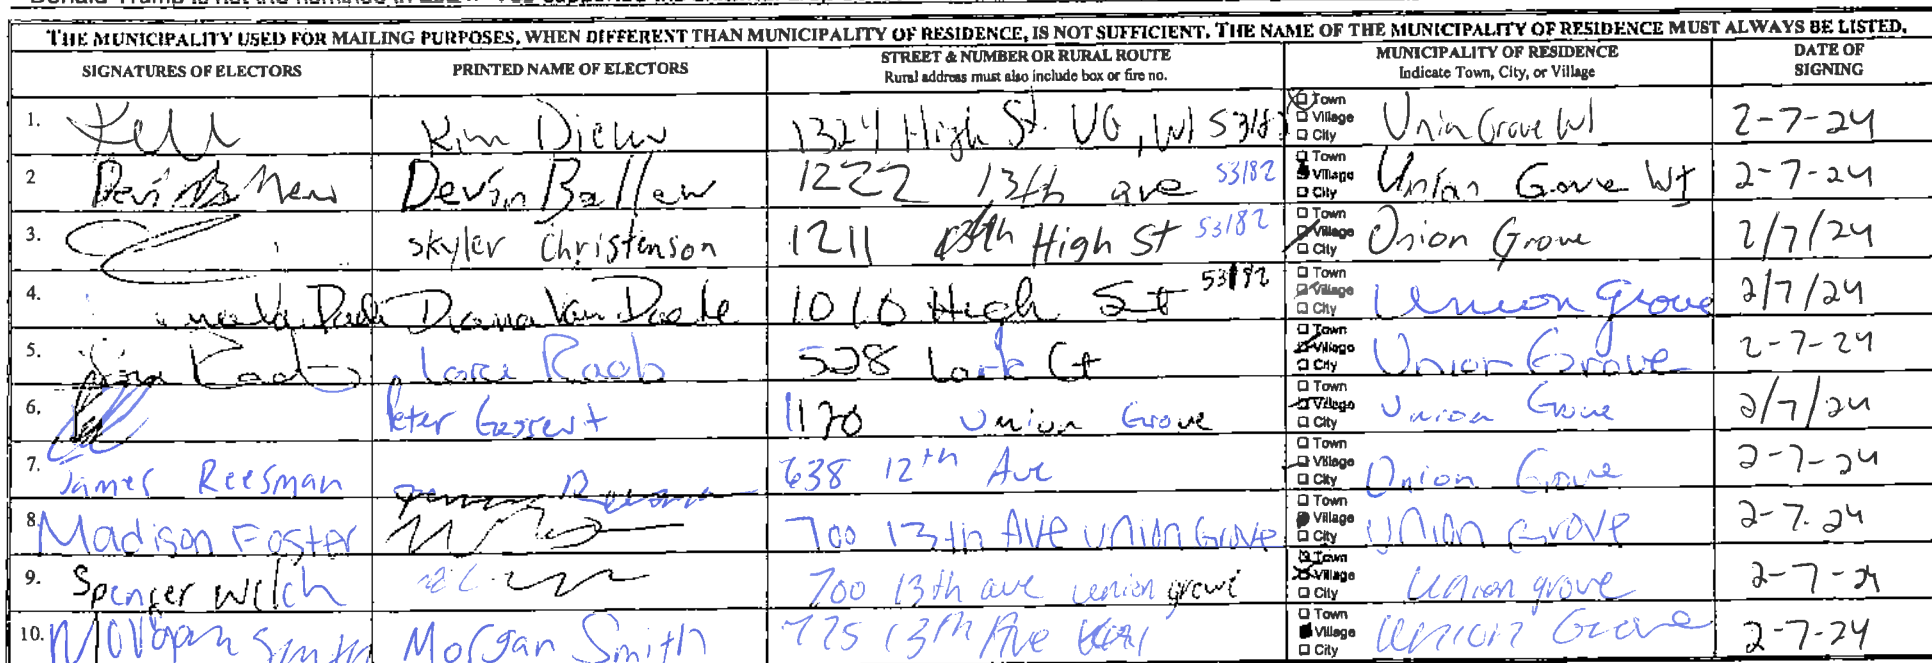 THE MUNICIPALITY USED FOR MAILING PURPOSES, WHEN DIFFERENT THAN MUNICIPALITY OF RESIDENCE, IS NOT SUFFICIENT. THE NAME OF THE MUNICIPALITY OF RESIDENCE MUST ALWAYS BE LISTED.
SIGNATURES OF ELECTORS PRINTED NAME OF ELECTORS STREET & NUMBER OR RURAL ROUTE Rural address must also include box or fire no. MUNICIPALITY OF RESIDENCE Indicate Town, City, or Village DATE OF SIGNING
1. Kim 1324 High St. UG, WI 53182 Town Village City Union Grove WI 2-7-24
2 Devin Ballew 1222 13th ave 53182 Town Village City Union Gove WI 2-7-24
3. Skyler Christenson 1211 High St 53182 Town Village City Union Grove 2/7/24
4. Diana Van Daele 1010 High St 53182 Town Village City Union Grove 2/7/24
5. Lori Raab 528 Lark Ct Town Village City Union Grove 2-7-24
6. Peter 1170 Union Grove Town Village City Union Grove 2/7/24
7. James Reesman 638 12th Ave Town Village City Union Grove 2-7-24
8. Madison Foster 700 13th AVE UNION GROVE Town Village City UNION GROVE 2-7-24
9. Spencer Welch 700 13th ave union grove Town Village City Union grove 2-7-24
10. Morgan Smith Morgan Smith 775 13th Ave Town Village City Union Grove 2-7-24